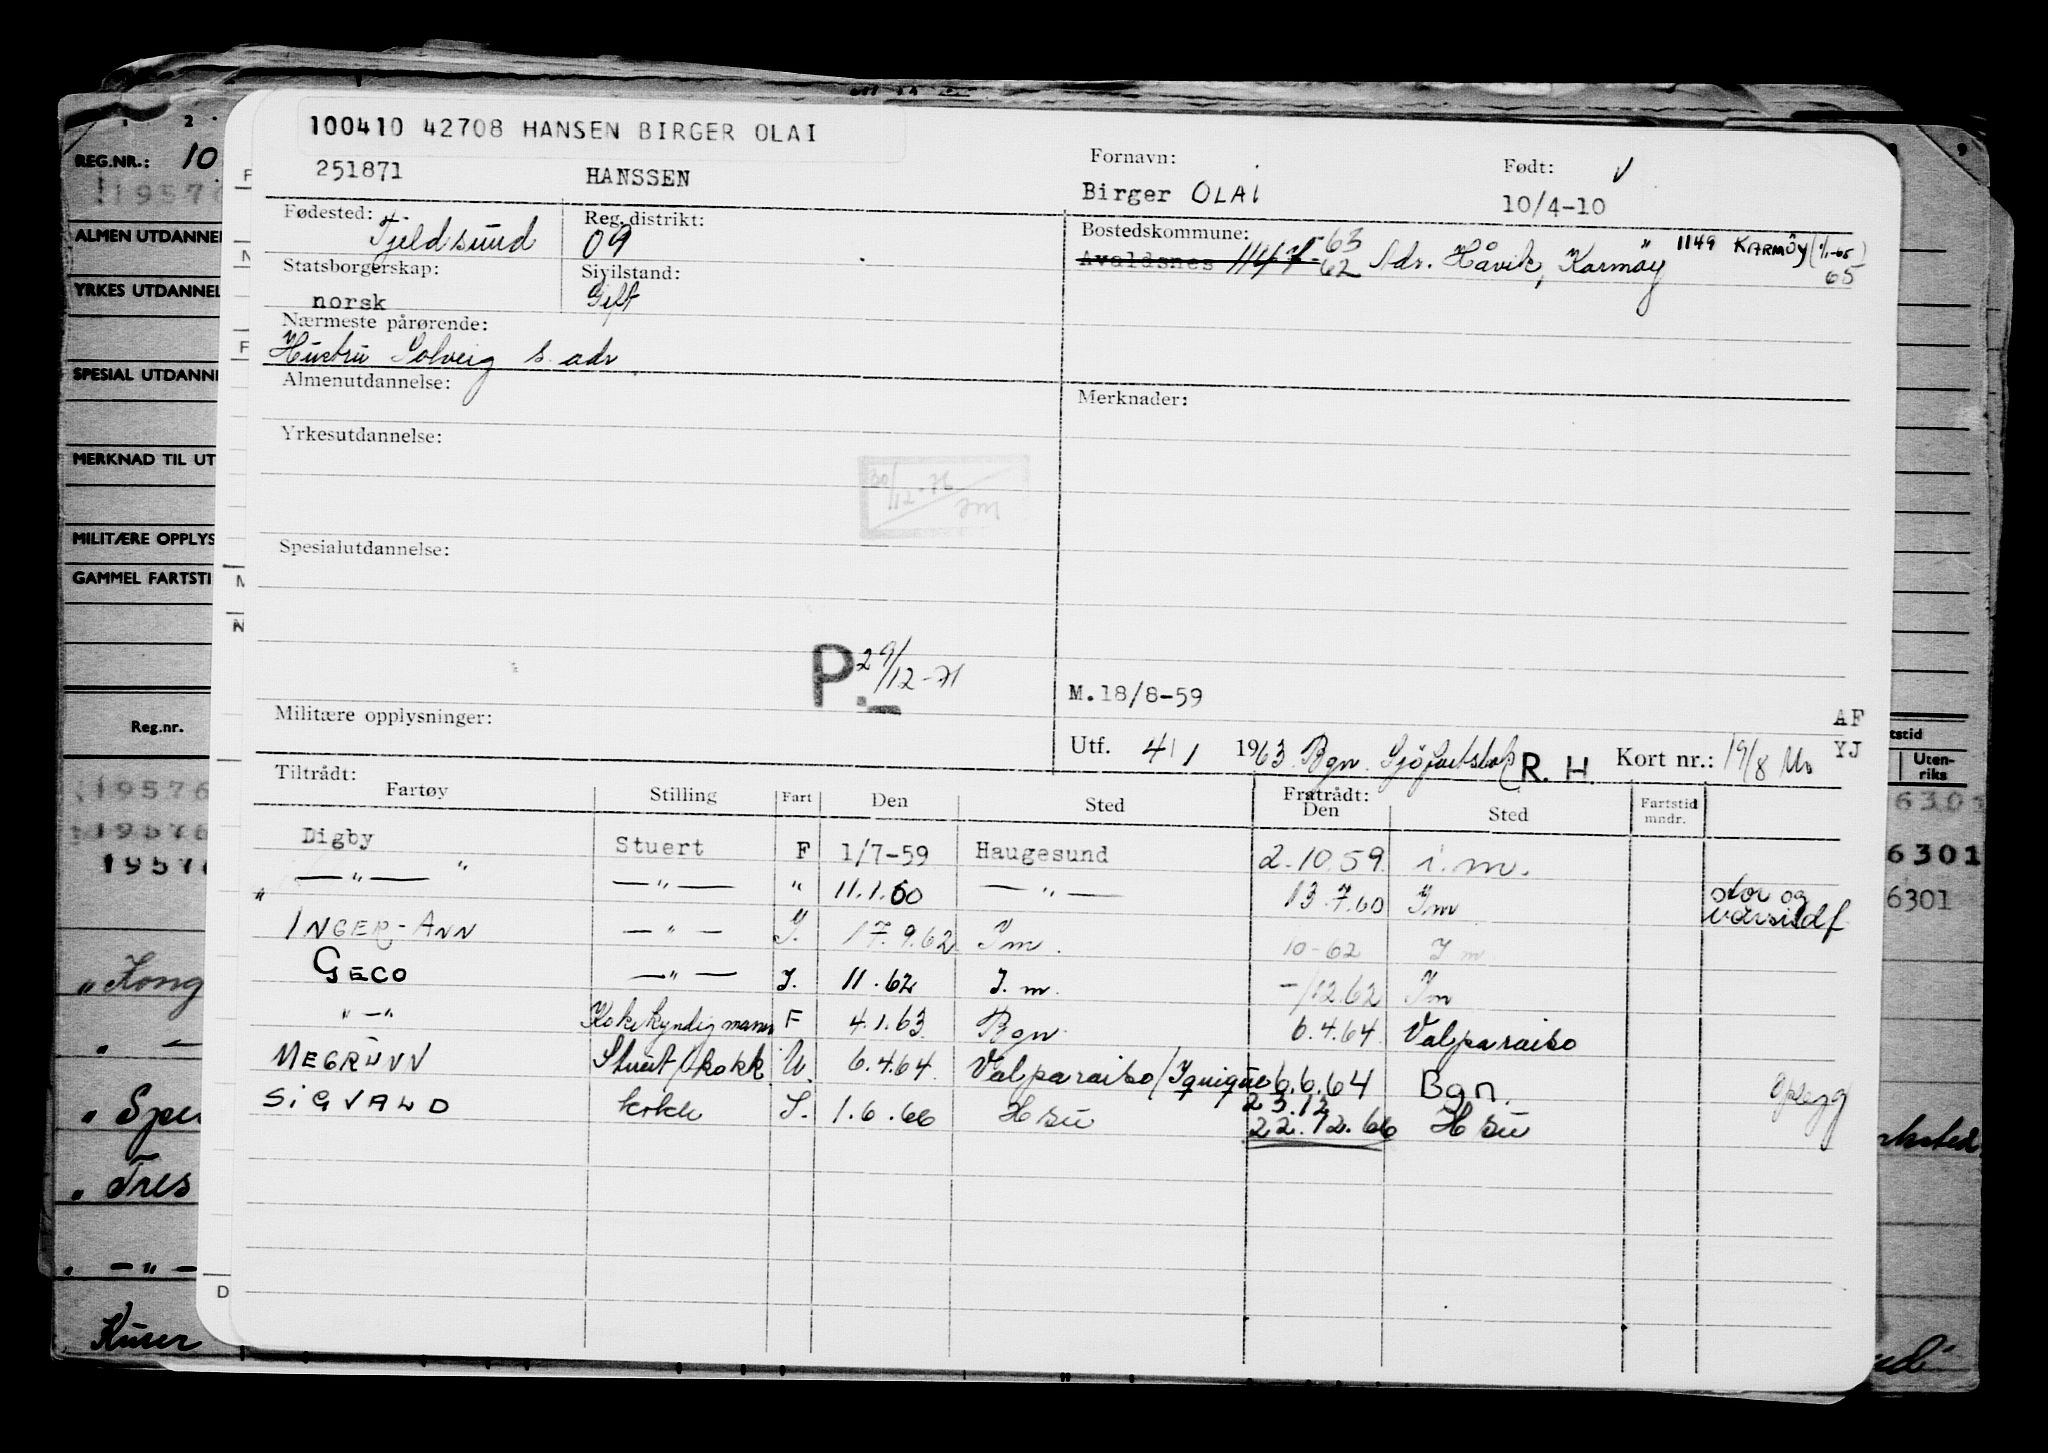 100410 42708 HANSEN BIRGER OLAI
251871 HANSSEN
Fornavn: Birger OLAI
Født: 10/4-10
Fødested: Fjeldsund
Reg. distrikt: 09
Bostedskommune: Avaldsnes 1147 -63 62 Adr. Håvik, Karmøy 1149 KARMÖY (1/1-65) 65
Statsborgerskap: norsk
Sivilstand: Gift
Nærmeste pårørende:
Hustru Solveig s. adr
Almenutdannelse:
Merknader:
Yrkesutdannelse:
30/12-76
Spesialutdannelse:
P. 29/12-71
M.18/8-59
Militære opplysninger:
AF
Utf. 4/1 1963 Bgn. Sjöfartskof R. H Kort nr.: 19/8 YJ
Tiltrådt: Fratrådt:
Fartøy Stilling Fart Den Sted Den Sted Fartstid mndr.
Digby Stuert F 1/7-59 Haugesund 2.10.59 i.m.
" — " — — " — " 11.1.60 — " — 13.7.60 Im stor og vårsildf
INGER-ANN — " — I. 17.9.62 Im. 10-62 Im
GECO — " — I. 11.62 I.m. -/12.62 Im
" — " Kokekyndig mann F 4.1.63 Bgn. 6.4.64 Valparaiso
MEGRUNN Stuert/kokk U. 6.4.64. Valparaiso/Iquique 6.6.64 Bgn.
SIGVALD kokk I. 1.6.66 Hsu 23.12 22.12.66 Hsu
REG.NR.: 10
ALMEN UTDANNEL
YRKES UTDANNEL
SPESIAL UTDANN
MERKNAD TIL UT
MILITÆRE OPPLYS
GAMMEL FARTSTI
Reg.nr.
Uten-
riks
19576
6303
19576
6301
1957
6301
" Kong
" Spe
" Tres
. — " —
Kuser
D